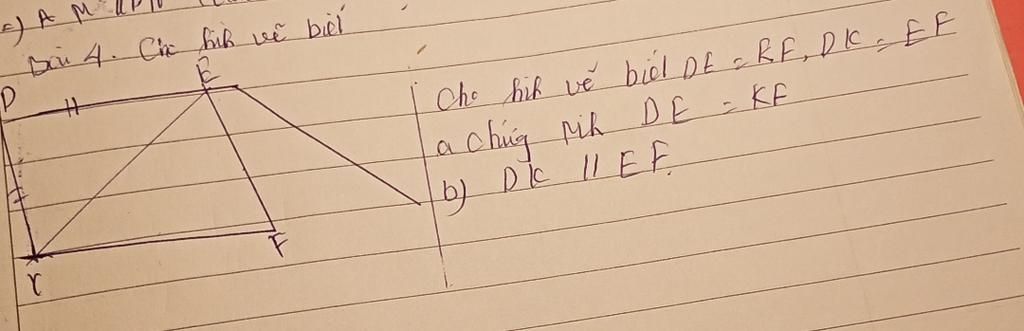 c) A M //
Bài 4. Cho hìh vẽ biết
D
E
K
F
Cho hìh vẽ biết DE = KF, DK = EF
a chứng mih DE = KF
b) DK // EF.